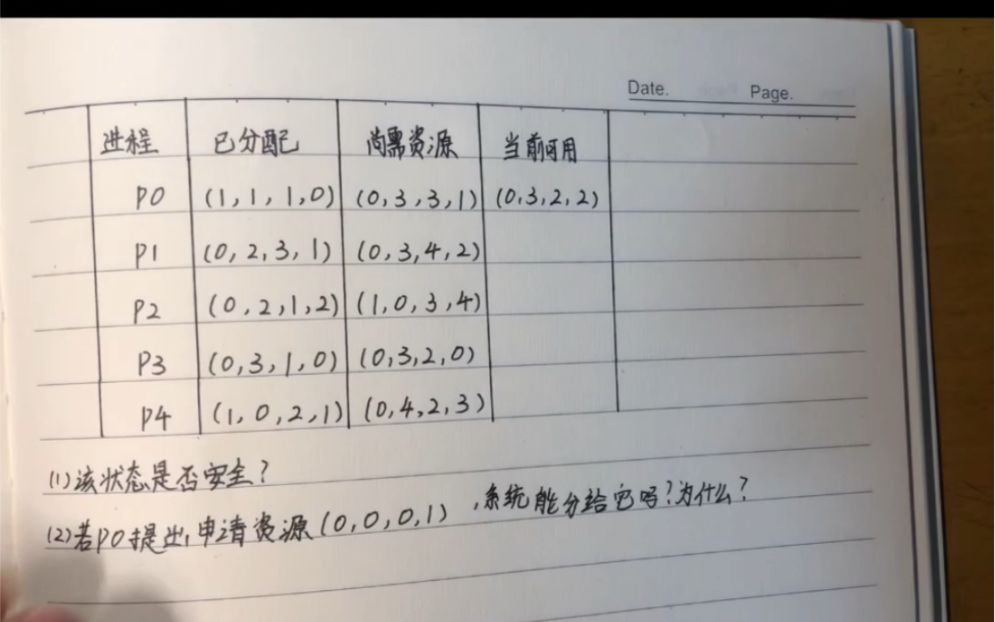 Date. Page.
进程 已分配 尚需资源 当前可用
P0 (1,1,1,0) (0,3,3,1) (0,3,2,2)
P1 (0,2,3,1) (0,3,4,2)
P2 (0,2,1,2) (1,0,3,4)
P3 (0,3,1,0) (0,3,2,0)
P4 (1,0,2,1) (0,4,2,3)
(1)该状态是否安全?
(2)若P0提出申请资源(0,0,0,1),系统能分给它吗?为什么?